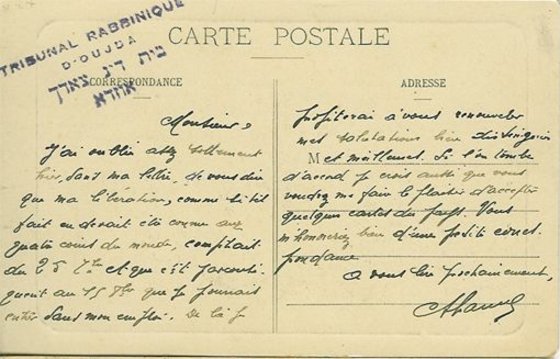 TRIBUNAL RABBINIQUE
D'OUJDA
בית דין צארך
אוזדא
CARTE POSTALE
CORRESPONDANCE
ADRESSE
Monsieur,
J'ai oublié assez sottement
hier, dans ma lettre, de vous dire
que ma libération, comme le tit
fait en devait été connu aux
quatre coins du monde, comptait
du 25 et que c'est
qu'au 15 que je pourrais
entrer dans mon emploi. De là je
profiterai à vous renouveler
mes salutations bien
M et meilleures. Si l'on tombe
d'accord je crois aussi que vous
voudrez me faire le plaisir d'accepter
quelques cartes du pays. Vous
m'honoreriez bien d'une petite corres-
pondance.
A vous lire prochainement,